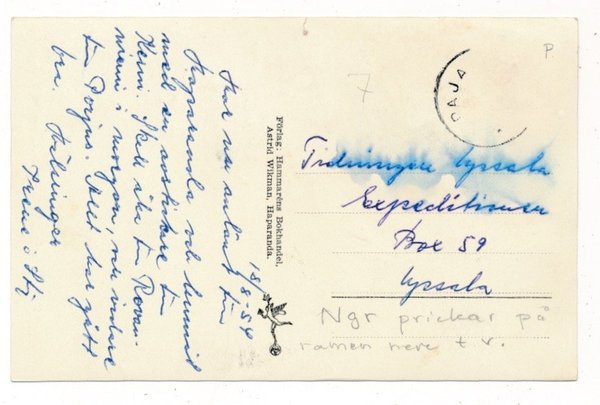 15/8-54
Har nu anlänt till
Haparanda och hunnit
med en avstickare till
Kemi. Skall åka till Rovan-
niemi i morgon, nu vidare
till Porjus. Allt har gått
bra. Hälsningar
Irene o Stig
Förlag: Hammaréns Bokhandel,
Astrid Wikman, Haparanda.
PAJA
P
7
Tidningen Upsala
Expeditionen
Box 59
Upsala
Ngr prickar på
ramen nere t.v.